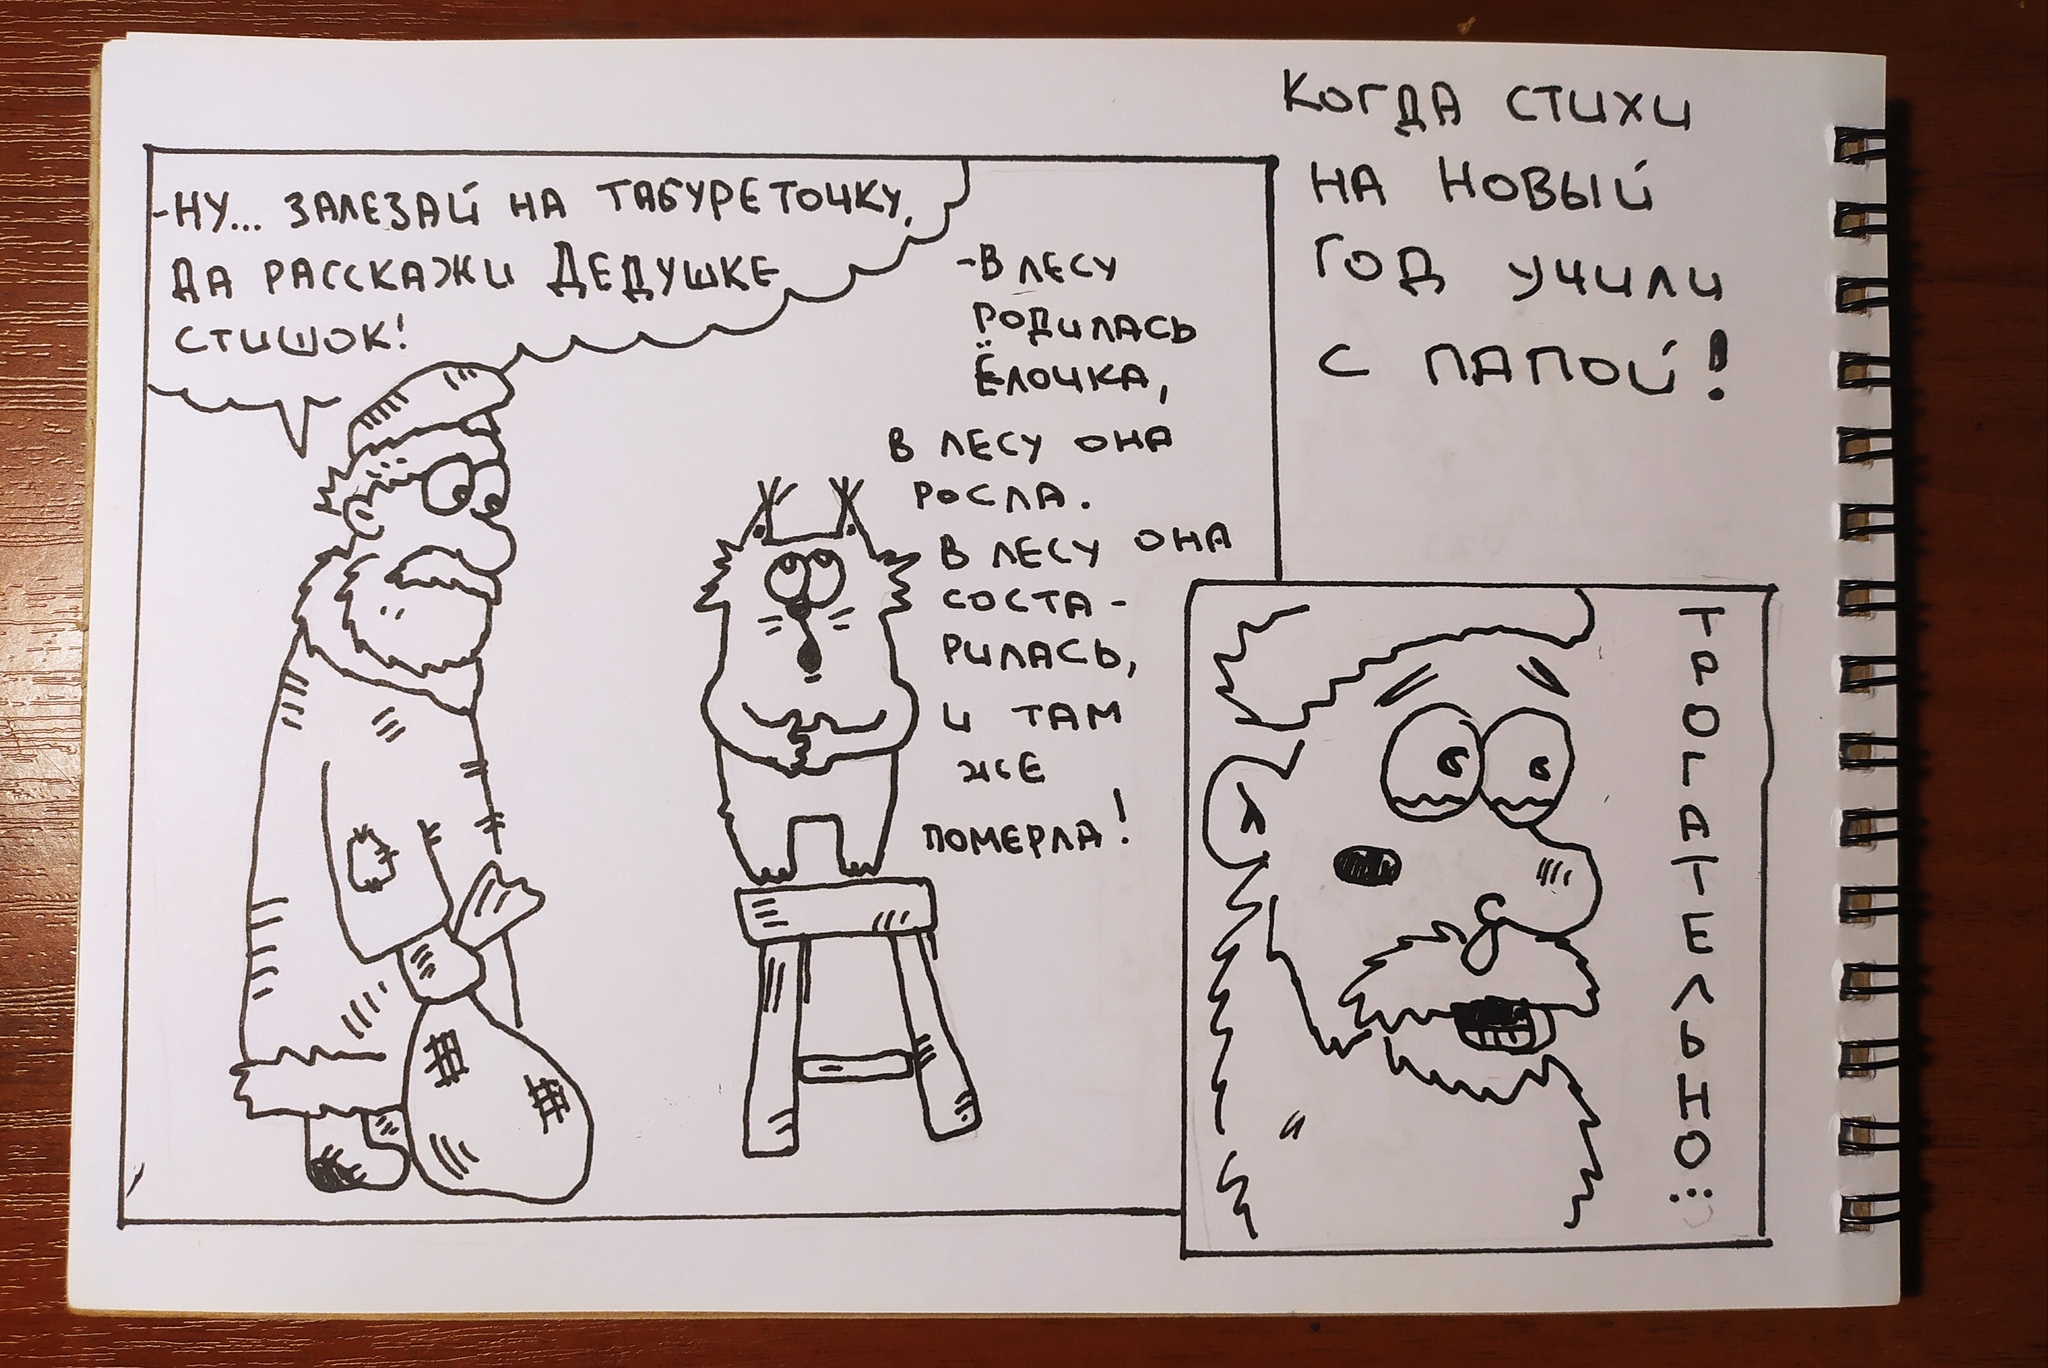 КОГДА СТИХИ
НА НОВЫЙ
ГОД УЧИЛИ
С ПАПОЙ!
-НУ... ЗАЛЕЗАЙ НА ТАБУРЕТОЧКУ,
ДА РАССКАЖИ ДЕДУШКЕ
СТИШОК!
-В ЛЕСУ
РОДИЛАСЬ
ЁЛОЧКА,
В ЛЕСУ ОНА
РОСЛА.
В ЛЕСУ ОНА
СОСТА-
РИЛАСЬ,
И ТАМ
ЖЕ
ПОМЕРЛА!
ТРОГАТЕЛЬНО...